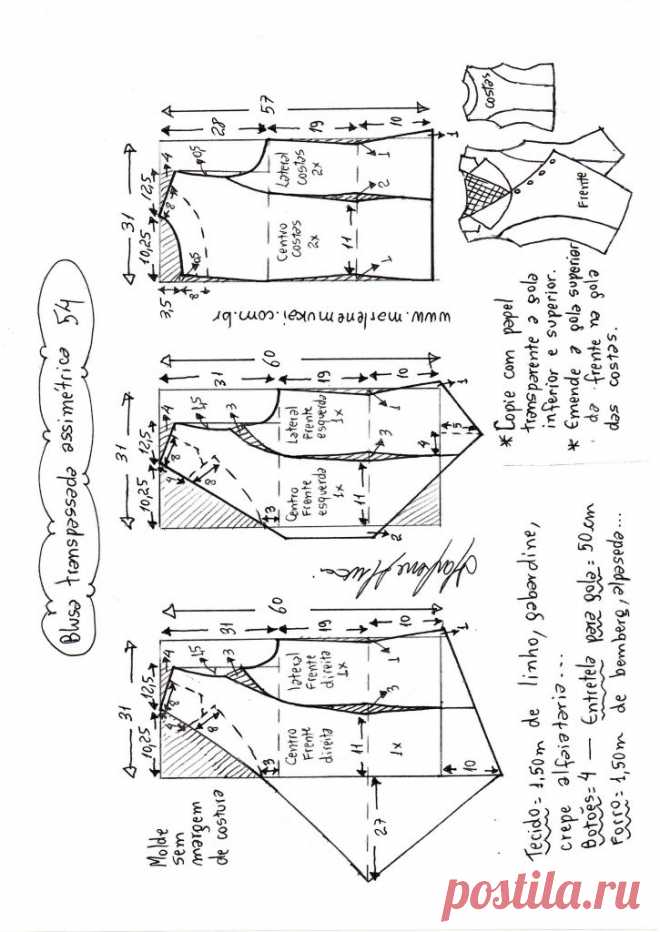 Blusa transpassada assimétrica 54
Molde
sem
margem
de costura
31
10,25
12,5
4
1,5
3
4
8
31
19
10
60
3
Centro
Frente
direita
1x
lateral
Frente
direita
1x
11
3
1
1
10
27
31
10,25
12,5
4
1,5
3
4
8
31
19
10
60
3
Centro
Frente
esquerda
1x
Lateral
Frente
esquerda
1x
11
3
1
1
4
5
2
31
10,25
12,5
4
0,5
8
3,5
8
0,5
28
19
10
57
Centro
costas
2x
Lateral
costas
2x
11
2
1
1
1
www.marlenemukai.com.br
Tecido= 1,50m de linho, gabardine,
crepe alfaiataria...
Botões= 4 — Entretela para gola= 50cm
Forro= 1,50m de bemberg, alpaseda...
* Copie com papel
transparente a gola
inferior e superior.
* Emende a gola superior
da frente na gola
das costas.
Frente
costas
postila.ru